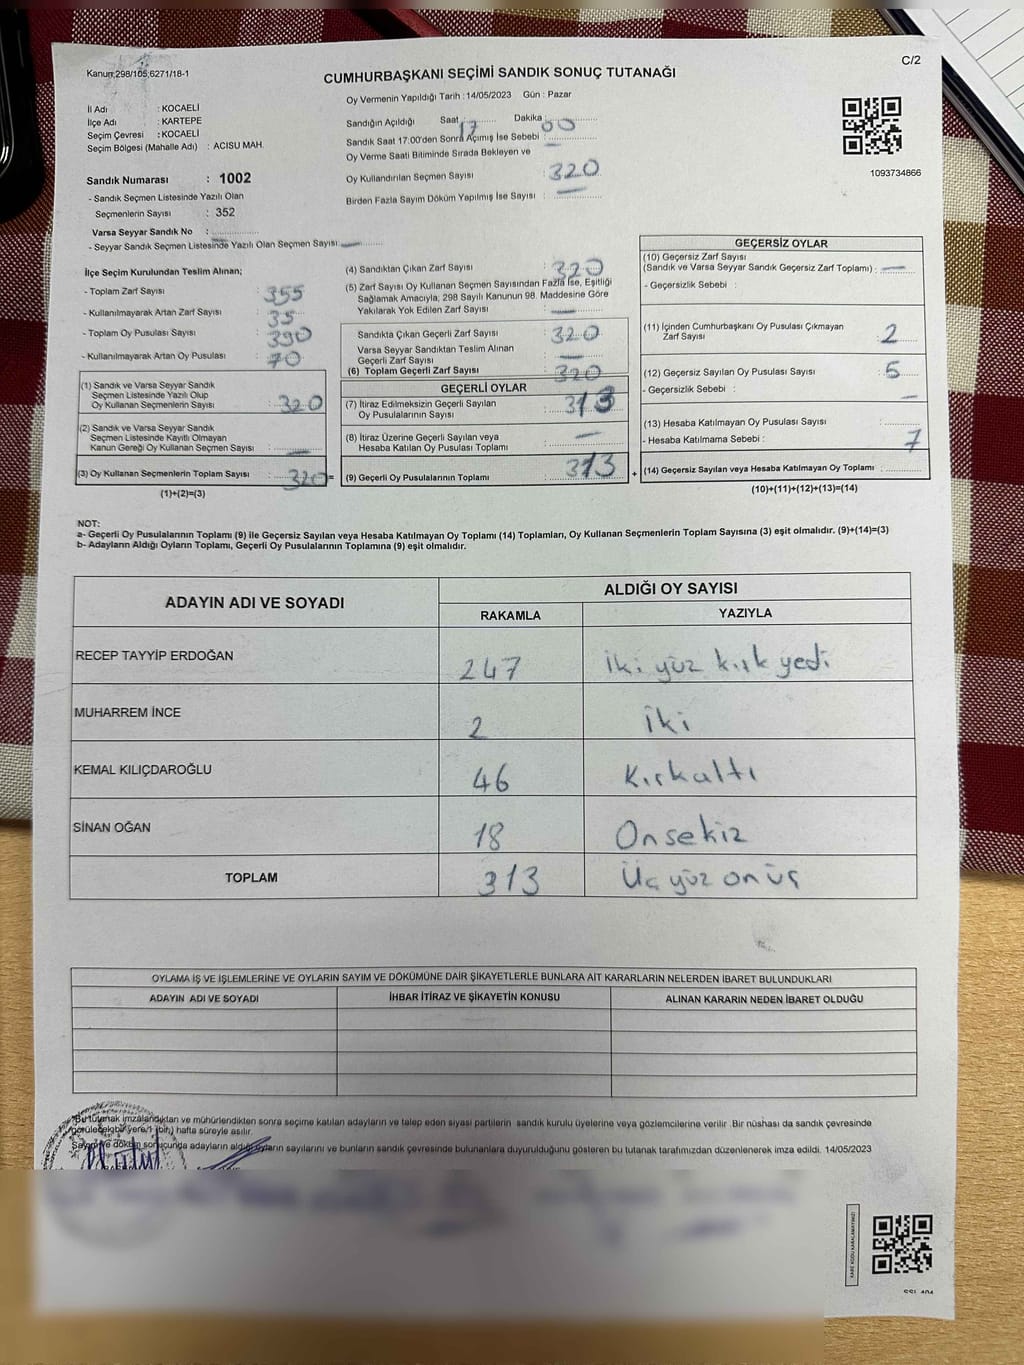 Kanun;298/105,6271/18-1
C/2
CUMHURBAŞKANI SEÇİMİ SANDIK SONUÇ TUTANAĞI
İl Adı : KOCAELİ
İlçe Adı : KARTEPE
Seçim Çevresi : KOCAELİ
Seçim Bölgesi (Mahalle Adı) : ACISU MAH.
Sandık Numarası : 1002
- Sandık Seçmen Listesinde Yazılı Olan
Seçmenlerin Sayısı : 352
Varsa Seyyar Sandık No :
- Seyyar Sandık Seçmen Listesinde Yazılı Olan Seçmen Sayısı: —
Oy Vermenin Yapıldığı Tarih : 14/05/2023 Gün : Pazar
Sandığın Açıldığı Saat 17 Dakika 00
Sandık Saat 17:00'den Sonra Açımış İse Sebebi : —
Oy Verme Saati Bitiminde Sırada Bekleyen ve
Oy Kullandırılan Seçmen Sayısı : 320
Birden Fazla Sayım Döküm Yapılmış İse Sayısı : —
1093734866
İlçe Seçim Kurulundan Teslim Alınan;
- Toplam Zarf Sayısı : 355
- Kullanılmayarak Artan Zarf Sayısı : 35
- Toplam Oy Pusulası Sayısı : 390
- Kullanılmayarak Artan Oy Pusulası : 70
(1) Sandık ve Varsa Seyyar Sandık
Seçmen Listesinde Yazılı Olup
Oy Kullanan Seçmenlerin Sayısı : 320
(2) Sandık ve Varsa Seyyar Sandık
Seçmen Listesinde Kayıtlı Olmayan
Kanun Gereği Oy Kullanan Seçmen Sayısı : —
(3) Oy Kullanan Seçmenlerin Toplam Sayısı : 320 =
(1)+(2)=(3)
(4) Sandıktan Çıkan Zarf Sayısı : 320
(5) Zarf Sayısı Oy Kullanan Seçmen Sayısından Fazla İse, Eşitliği
Sağlamak Amacıyla, 298 Sayılı Kanunun 98. Maddesine Göre
Yakılarak Yok Edilen Zarf Sayısı : —
Sandıkta Çıkan Geçerli Zarf Sayısı : 320
Varsa Seyyar Sandıktan Teslim Alınan
Geçerli Zarf Sayısı : —
(6) Toplam Geçerli Zarf Sayısı : 320
GEÇERLİ OYLAR
(7) İtiraz Edilmeksizin Geçerli Sayılan
Oy Pusulalarının Sayısı : 313
(8) İtiraz Üzerine Geçerli Sayılan veya
Hesaba Katılan Oy Pusulası Toplamı : —
(9) Geçerli Oy Pusulalarının Toplamı : 313 +
GEÇERSİZ OYLAR
(10) Geçersiz Zarf Sayısı
(Sandık ve Varsa Seyyar Sandık Geçersiz Zarf Toplamı) : —
- Geçersizlik Sebebi :
(11) İçinden Cumhurbaşkanı Oy Pusulası Çıkmayan
Zarf Sayısı : 2
(12) Geçersiz Sayılan Oy Pusulası Sayısı : 5
- Geçersizlik Sebebi : —
(13) Hesaba Katılmayan Oy Pusulası Sayısı :
- Hesaba Katılmama Sebebi : 7
(14) Geçersiz Sayılan veya Hesaba Katılmayan Oy Toplamı :
(10)+(11)+(12)+(13)=(14)
NOT:
a- Geçerli Oy Pusulalarının Toplamı (9) ile Geçersiz Sayılan veya Hesaba Katılmayan Oy Toplamı (14) Toplamları, Oy Kullanan Seçmenlerin Toplam Sayısına (3) eşit olmalıdır. (9)+(14)=(3)
b- Adayların Aldığı Oyların Toplamı, Geçerli Oy Pusulalarının Toplamına (9) eşit olmalıdır.
ADAYIN ADI VE SOYADI
ALDIĞI OY SAYISI
RAKAMLA YAZIYLA
RECEP TAYYİP ERDOĞAN 247 iki yüz kırk yedi
MUHARREM İNCE 2 iki
KEMAL KILIÇDAROĞLU 46 Kırkaltı
SİNAN OĞAN 18 Onsekiz
TOPLAM 313 Üç yüz onüç
OYLAMA İŞ VE İŞLEMLERİNE VE OYLARIN SAYIM VE DÖKÜMÜNE DAİR ŞİKAYETLERLE BUNLARA AİT KARARLARIN NELERDEN İBARET BULUNDUKLARI
ADAYIN ADI VE SOYADI İHBAR İTİRAZ VE ŞİKAYETİN KONUSU ALINAN KARARIN NEDEN İBARET OLDUĞU
Bu tutanak imzalandıktan ve mühürlendikten sonra seçime katılan adayların ve talep eden siyasi partilerin sandık kurulu üyelerine veya gözlemcilerine verilir .Bir nüshası da sandık çevresinde
görülecek bir yere 1 (bir) hafta süreyle asılır.
Sayım ve döküm sonucunda adayların aldığı oyların sayılarını ve bunların sandık çevresinde bulunanlara duyurulduğunu gösteren bu tutanak tarafımızdan düzenlenerek imza edildi. 14/05/2023
KARE KODU KARALAMAYINIZ!